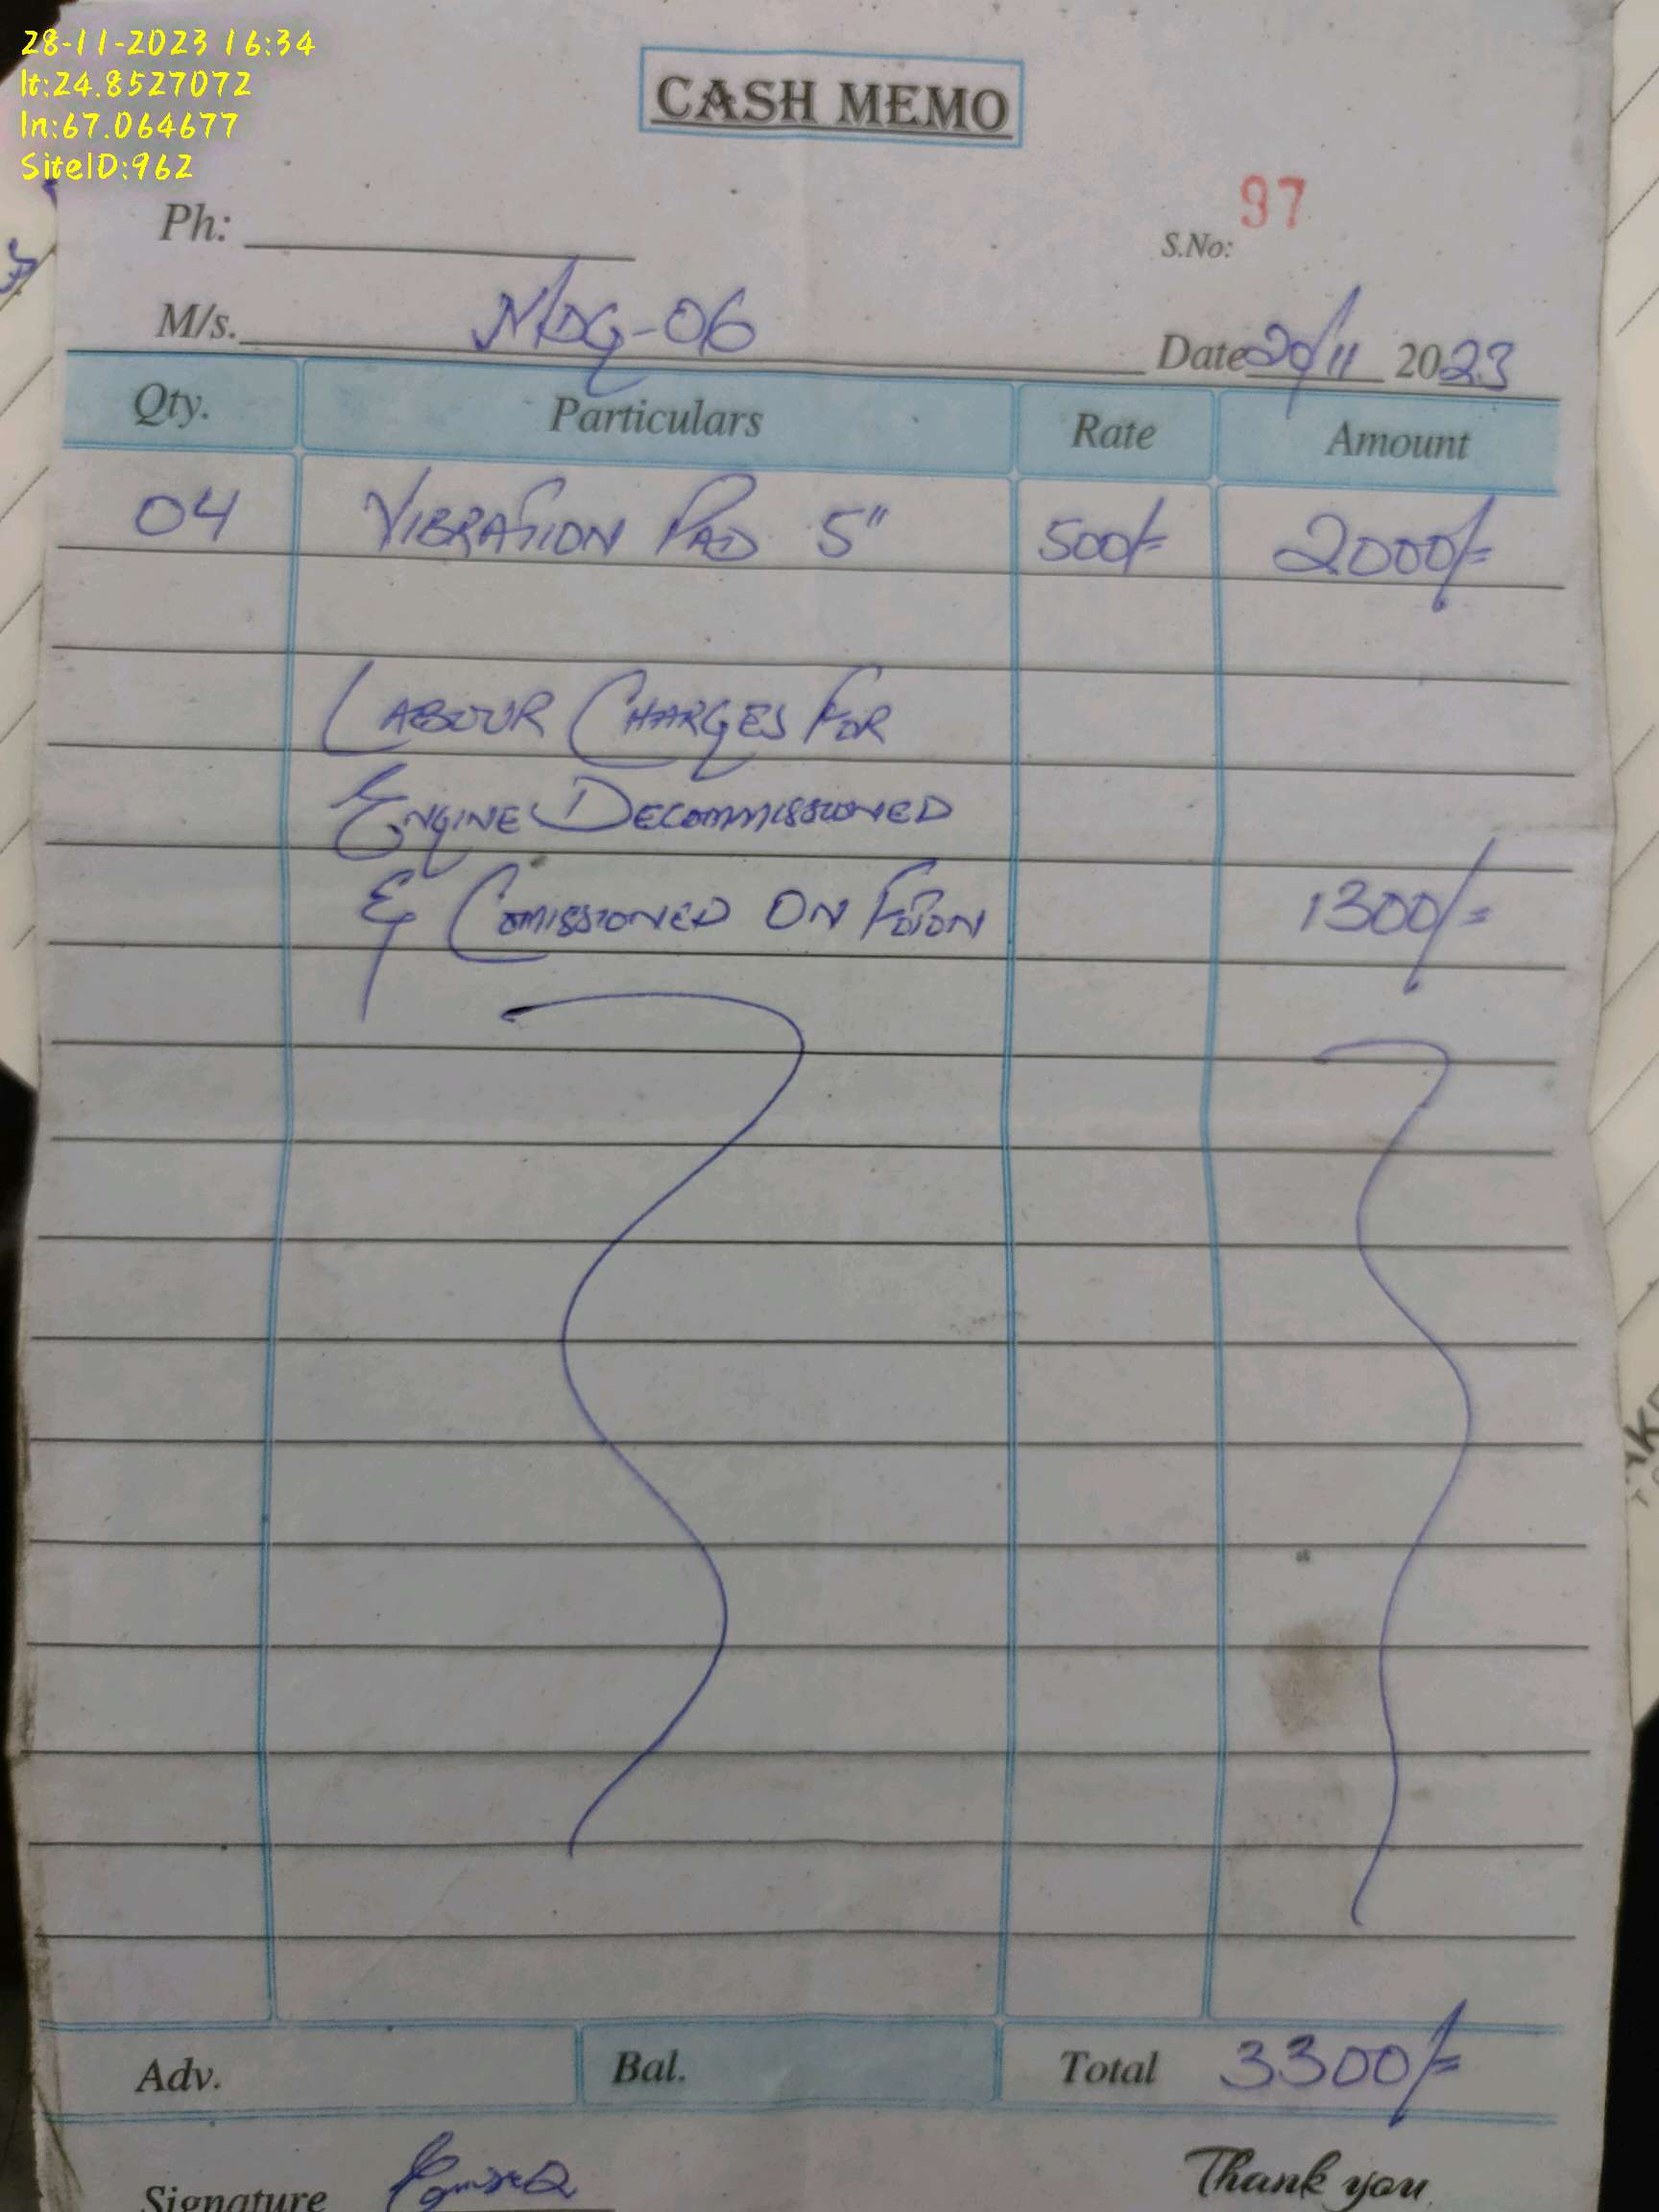 28-11-2023 16:34
lt:24.8527072
ln:67.064677
SiteID:962
CASH MEMO
Ph:
S.No: 97
M/s. MDG-06
Date 20/11 2023
Qty. Particulars Rate Amount
04 VIBRATION PAD 5" 500/= 2000/=
LABOUR CHARGES FOR
ENGINE DECOMMISSIONED
& COMISSIONED ON FOTON 1300/=
Adv. Bal. Total 3300/=
Signature
Thank you